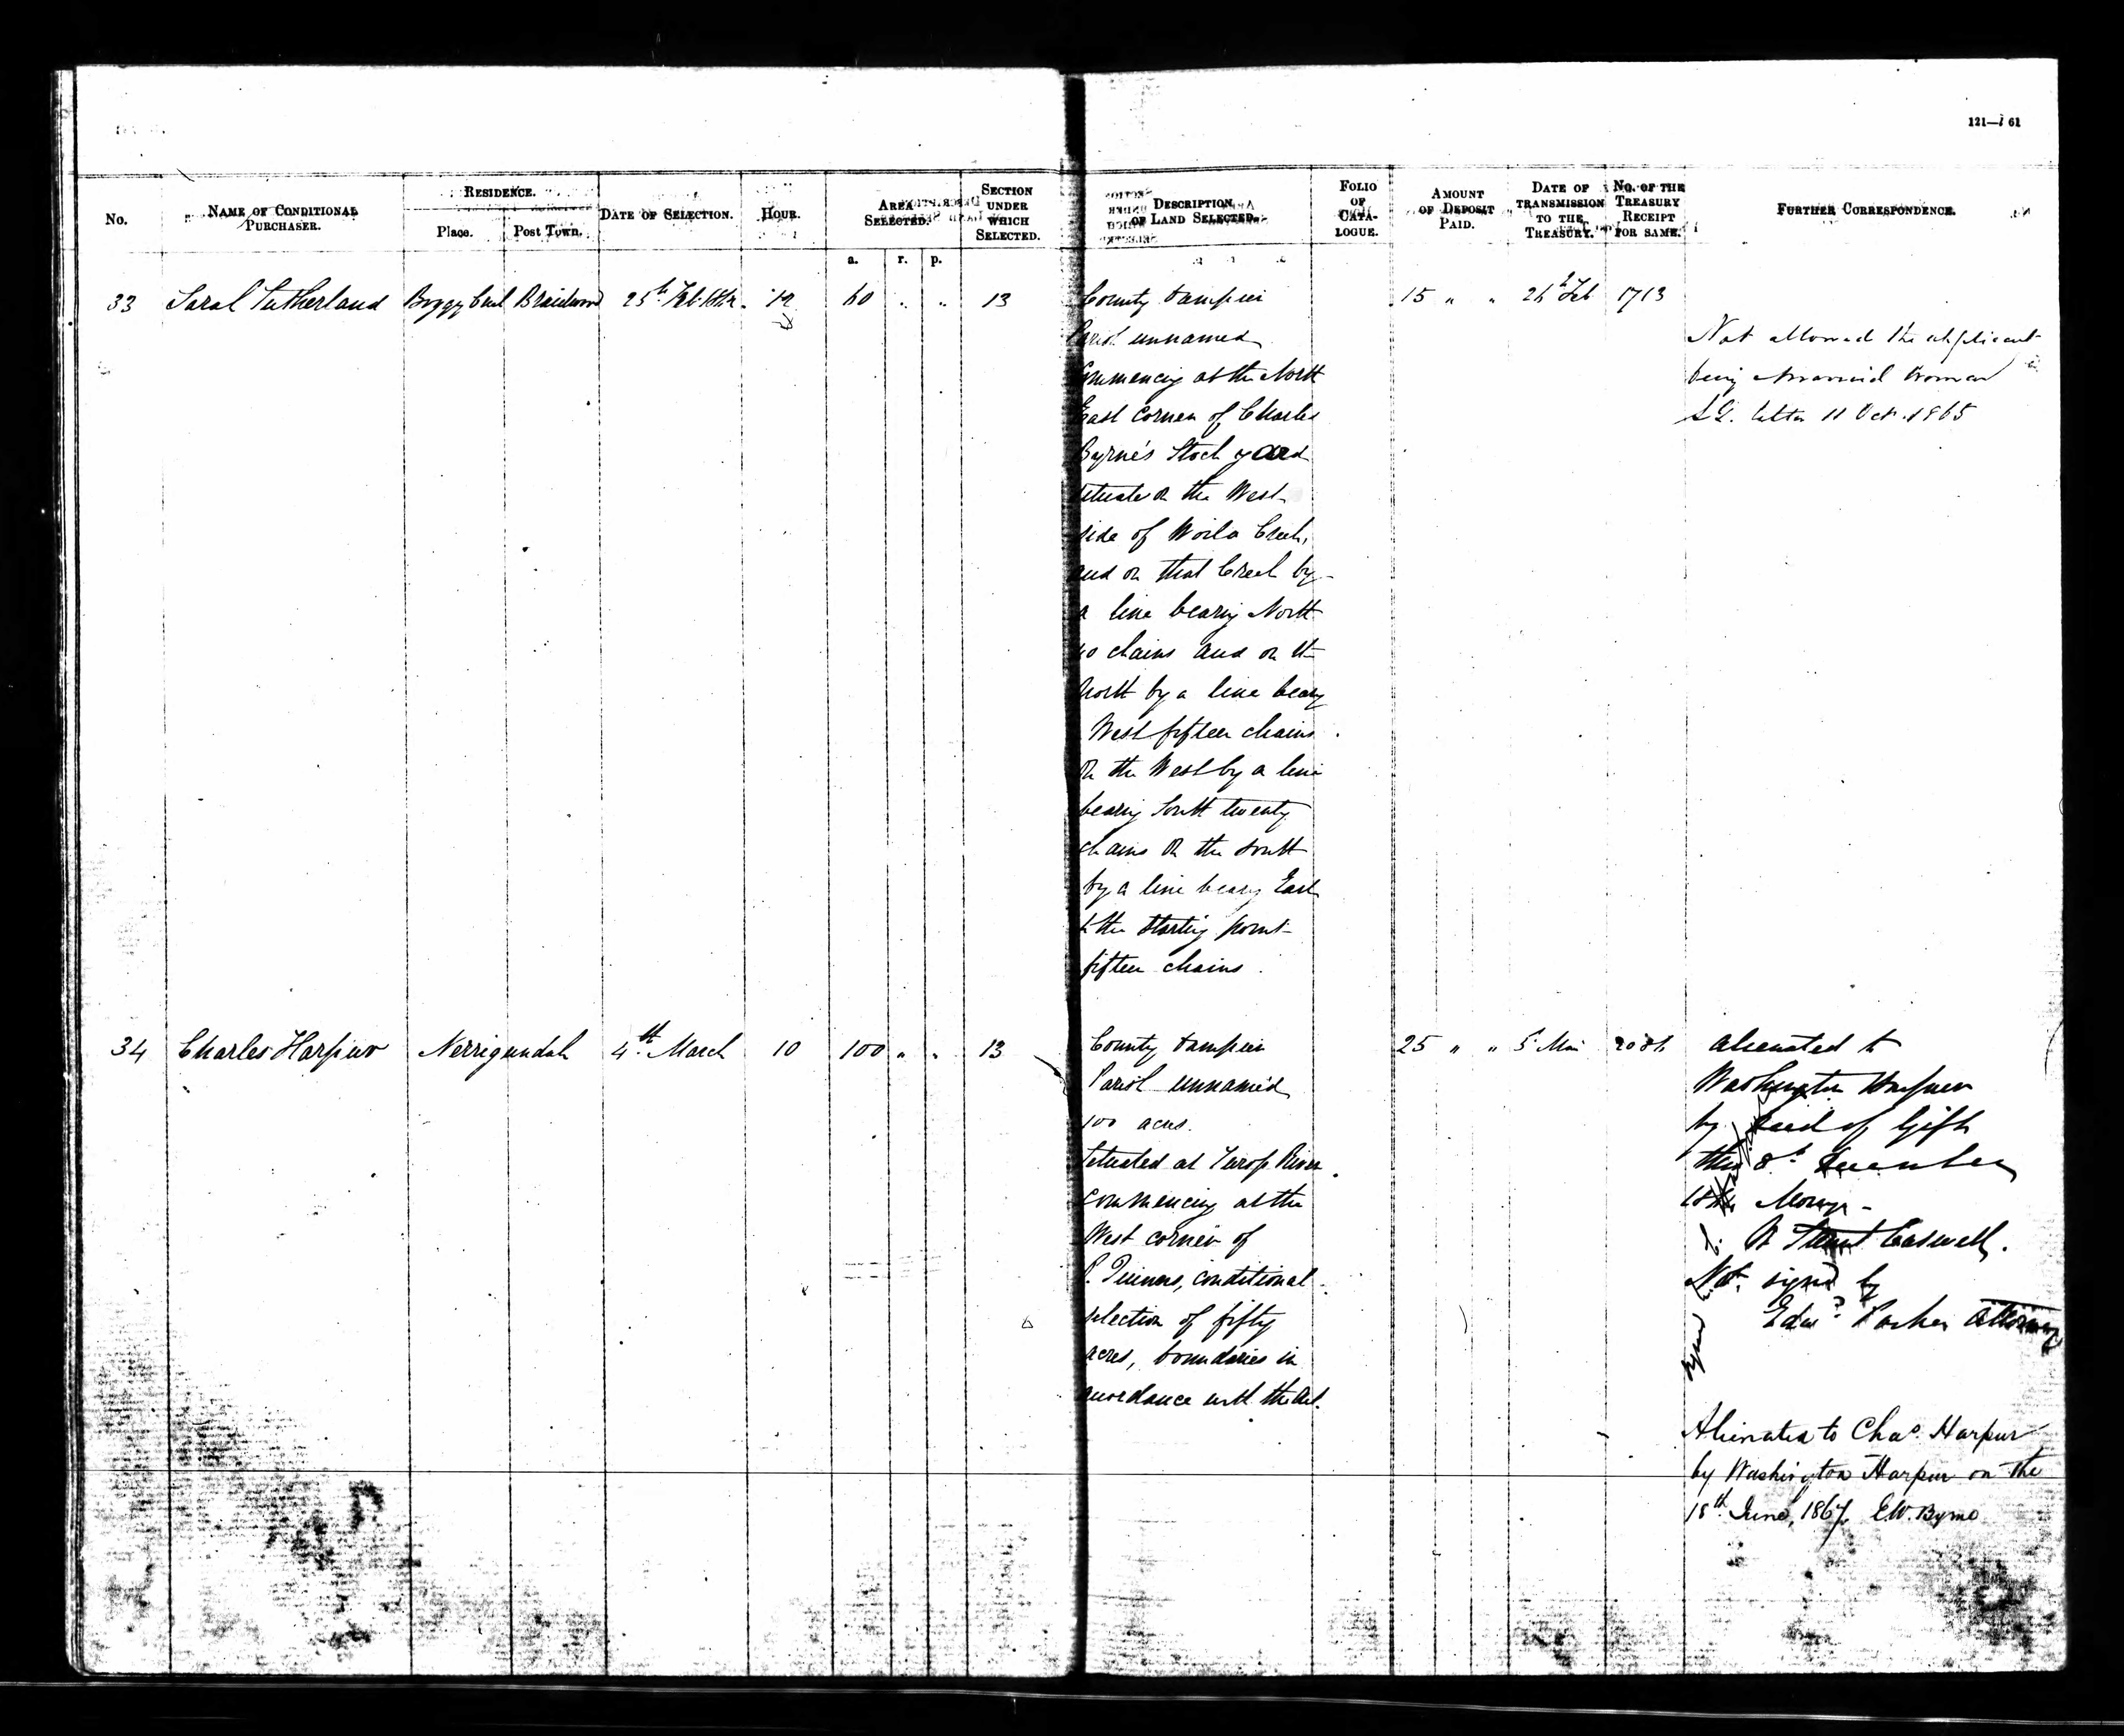 121—i 61
No.
NAME OF CONDITIONAL PURCHASER.
RESIDENCE.
Place.
Post Town.
DATE OF SELECTION.
HOUR.
AREA SELECTED.
a. r. p.
SECTION UNDER WHICH SELECTED.
DESCRIPTION OF LAND SELECTED.
FOLIO OF CATALOGUE.
AMOUNT OF DEPOSIT PAID.
DATE OF TRANSMISSION TO THE TREASURY.
NO. OF THE TREASURY RECEIPT FOR SAME.
FURTHER CORRESPONDENCE.
33 Sarah Sutherland Braidwood 25th Feb 12 60 " " 13
County Dampier
Parish unnamed
Commencing at the North
East corner of Charles
Byrne's Stock yard
situate on the West
side of Woila Creek,
and on that Creek by
a line bearing North
40 chains and on the
North by a line bearing
West fifteen chains
On the West by a line
bearing South twenty
chains On the South
by a line bearing East
to the Starting point
fifteen chains.
15 " " 26th Feb 1713
Not allowed the applicant
being a married woman
letter 11 Oct. 1865
34 Charles Harpur Nerrigundah 4th March 10 100 " " 13
County Dampier
Parish unnamed
100 acres.
Situated at River
commencing at the
West corner of
conditional
selection of fifty
acres, boundaries in
accordance with the Act.
25 " " 5
Alienated to
Washington Harpur
by Deed of Gift
the 8th December
Caswell.
Not signed by
Parker Attorney
Alienated to Chas. Harpur
by Washington Harpur on the
18th June, 1867. E.W. Byrne